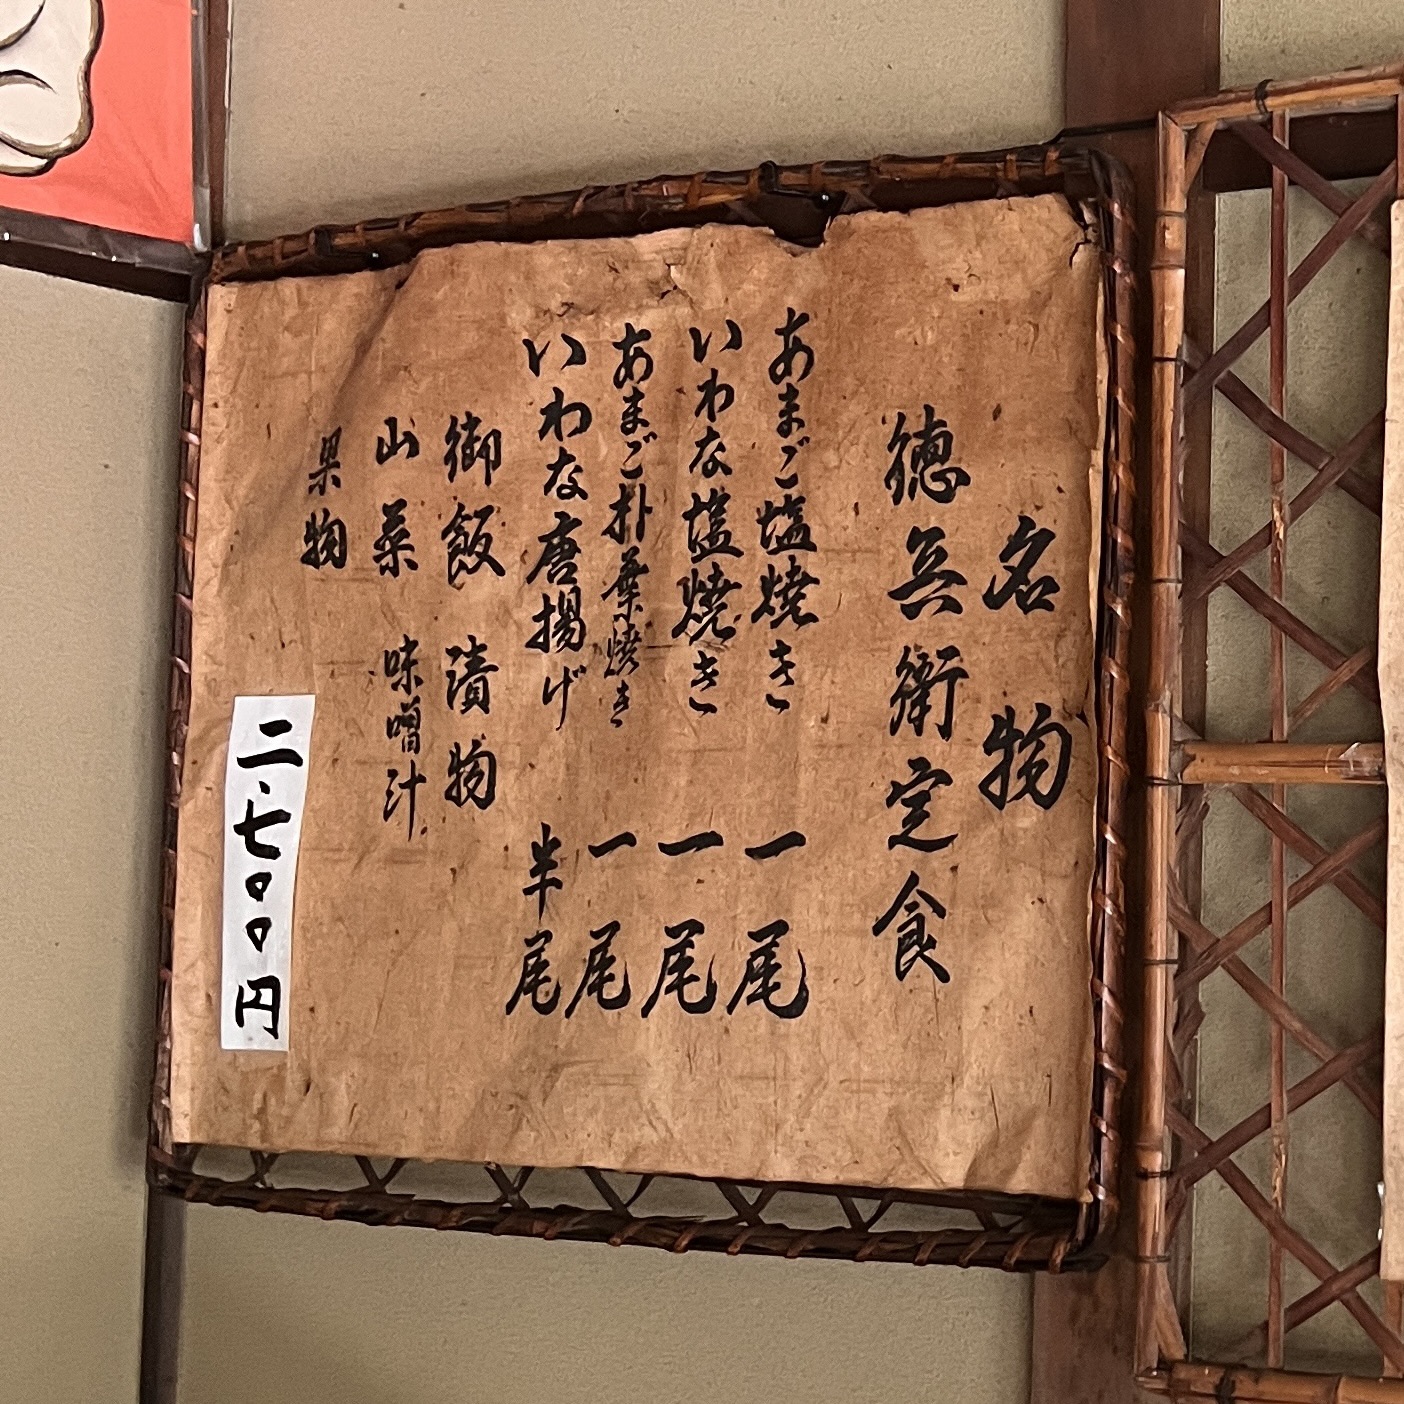 名物
徳兵衛定食
あまご塩焼き 一尾
いわな塩焼き 一尾
あまご朴葉焼き 一尾
いわな唐揚げ 半尾
御飯 漬物
山菜 味噌汁
果物
二.七〇〇円